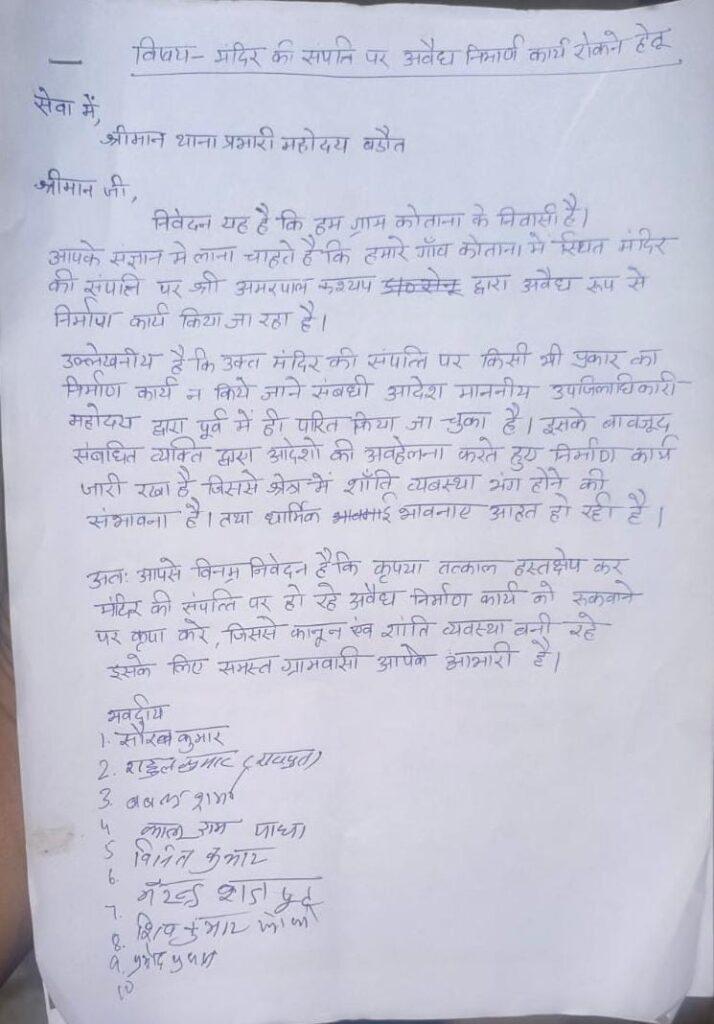 विषय- मंदिर की संपत्ति पर अवैध निमार्ण कार्य रोकने हेतू
सेवा में,
श्रीमान थाना प्रभारी महोदय बडौत
श्रीमान जी,
निवेदन यह है कि हम ग्राम कोताना के निवासी है।
आपके संज्ञान मे लाना चाहते है कि हमारे गाँव कोताना में स्थित मंदिर
की संपत्ति पर श्री अमरपाल कश्यप द्वारा अवैध रूप से
निर्माण कार्य किया जा रहा है।
उल्लेखनीय है कि उक्त मंदिर की संपत्ति पर किसी भी प्रकार का
निर्माण कार्य न किये जाने संबधी आदेश माननीय उपजिलाधिकारी
महोदय द्वारा पूर्व में ही परित किया जा चुका है। इसके बावजूद
संबधित व्यक्ति द्वारा आदेशो की अवहेलना करते हुए निर्माण कार्य
जारी रखा है जिससे क्षेत्र में शाँति व्यबस्था भंग होने की
संभावना है। तथा धार्मिक भावनाए आहत हो रही है।
अतः आपसे विनम्र निवेदन है कि कृपया तत्काल हस्तक्षेप कर
मंदिर की संपत्ति पर हो रहे अवैध निर्माण कार्य को रूकवाने
पर कृपा करे, जिससे कानून एंव शांति व्यवस्था बनी रहे
इसके लिए समस्त ग्रामवासी आपके आभारी है।
भवदीय
1. सौरव कुमार
2. राहुल कुमार (राजपुत)
3. बबलू शर्मा
4 कालू राम
5 विनित कुमार
6.
7.
8. शिव कुमार
9. प्रमोद
10